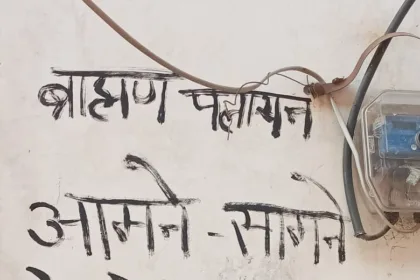 ब्राह्मण पलायन
आमने - सामने